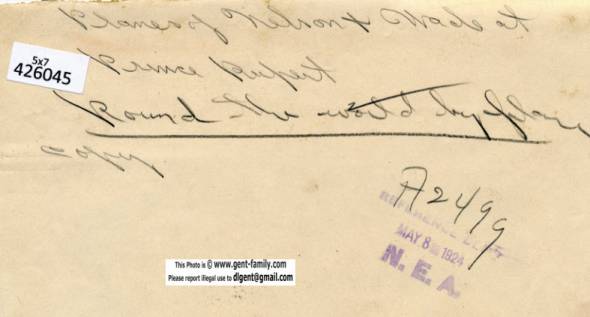 Planes of Nelson & Wade at
Prince Rupert
5x7
426045
Round the world by plane
copy
A2499
REFERENCE DEPT
MAY 8 1924
N.E.A.
This Photo is © www.gent-family.com
Please report illegal use to digent@gmail.com